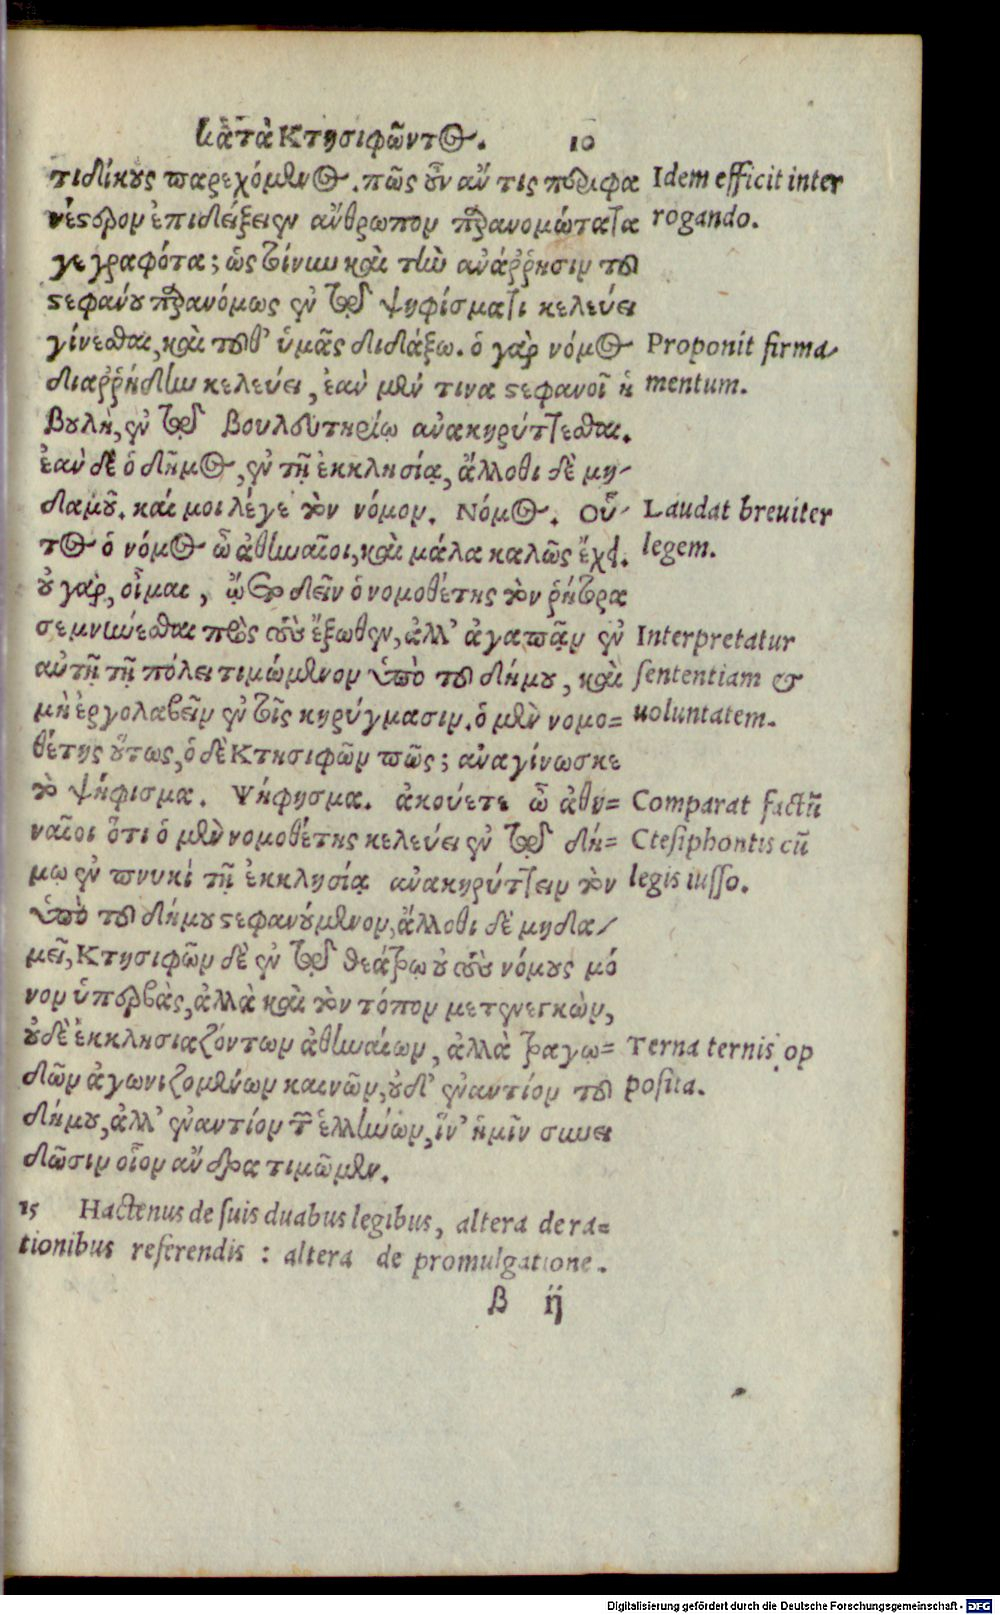 κατὰ Κτησιφῶντος. 10
τιδίκους παρεχόμενος. πῶς οὖν ἄν τις περιφα
νέστερον ἐπιδείξειεν ἄνθρωπον παρανομώτατα
γεγραφότα; ὡς τοίνυν καὶ τὴν ἀνάῤῥησιν τοῦ
στεφάνου παρανόμως ἐν τῷ ψηφίσματι κελεύει
γίνεσθαι, καὶ τοῦθ' ὑμᾶς διδάξω. ὁ γὰρ νόμος
διαῤῥήδην κελεύει, ἐὰν μέν τινα στεφανοῖ ἡ
βουλὴ, ἐν τῷ βουλευτηρίῳ ἀνακηρύττεσθαι.
ἐὰν δὲ ὁ δῆμος, ἐν τῇ ἐκκλησίᾳ, ἄλλοθι δὲ μη-
δαμοῦ. καί μοι λέγε τὸν νόμον. Νόμος. Οὗ-
τος ὁ νόμος ὦ ἀθηναῖοι, καὶ μάλα καλῶς ἔχει.
οὐ γὰρ, οἶμαι, ᾤετο δεῖν ὁ νομοθέτης τὸν ῥήτορα
σεμνύνεσθαι πρὸς τοὺς ἔξωθεν, ἀλλ' ἀγαπᾷν ἐν
αὐτῇ τῇ πόλει τιμώμενον ὑπὸ τοῦ δήμου, καὶ
μὴ ἐργολαβεῖν ἐν τοῖς κηρύγμασιν. ὁ μὲν νομο=
θέτης οὕτως, ὁ δὲ Κτησιφῶν πῶς; ἀναγίνωσκε
τὸ ψήφισμα. Ψήφησμα. ἀκούετε ὦ ἀθη=
ναῖοι ὅτι ὁ μὲν νομοθέτης κελεύει ἐν τῷ δή=
μῳ ἐν πνυκὶ τῇ ἐκκλησίᾳ ἀνακηρύττειν τὸν
ὑπὸ τοῦ δήμου στεφανούμενον, ἄλλοθι δὲ μηδα-
μεῖ, Κτησιφῶν δὲ ἐν τῷ θεάτρῳ οὐ τοὺς νόμους μό
νον ὑπερβὰς, ἀλλὰ καὶ τὸν τόπον μετενεγκὼν,
οὐδὲ ἐκκλησιαζόντων ἀθηναίων, ἀλλὰ τραγω=
δῶν ἀγωνιζομένων καινῶν, οὐδ' ἐναντίον τοῦ
δήμου, ἀλλ' ἐναντίον τῶν ἑλλήνων, ἵν' ἡμῖν συνει
δῶσιν οἷον ἄνδρα τιμῶμεν.
15 Hactenus de suis duabus legibus, altera de ra=
tionibus referendis : altera de promulgatione.
β ij
Idem efficit inter
rogando.
Proponit firma
mentum.
Laudat breuiter
legem.
Interpretatur
sententiam &
uoluntatem.
Comparat factũ
Ctesiphontis cũ
legis iusso.
Terna ternis op
posita.
Digitalisierung gefördert durch die Deutsche Forschungsgemeinschaft - DFG